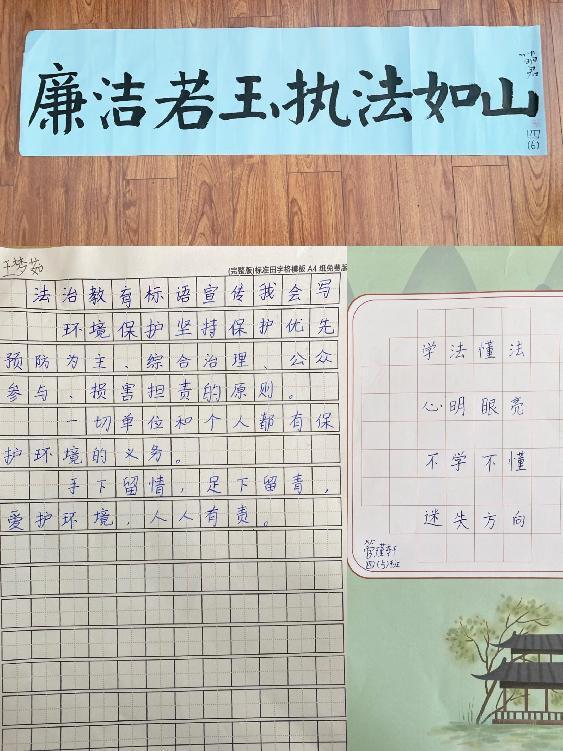 廉洁若玉执法如山
四(6)
王梦茹
(完整版)标准田字格模板A4纸免费版
法治教育标语宣传我会写
环境保护坚持保护优先
预防为主、综合治理、公众
参与、损害担责的原则。
一切单位和个人都有保
护环境的义务。
手下留情,足下留青,
爱护环境,人人有责。
学法懂法
心明眼亮
不学不懂
迷失方向
四(5)班